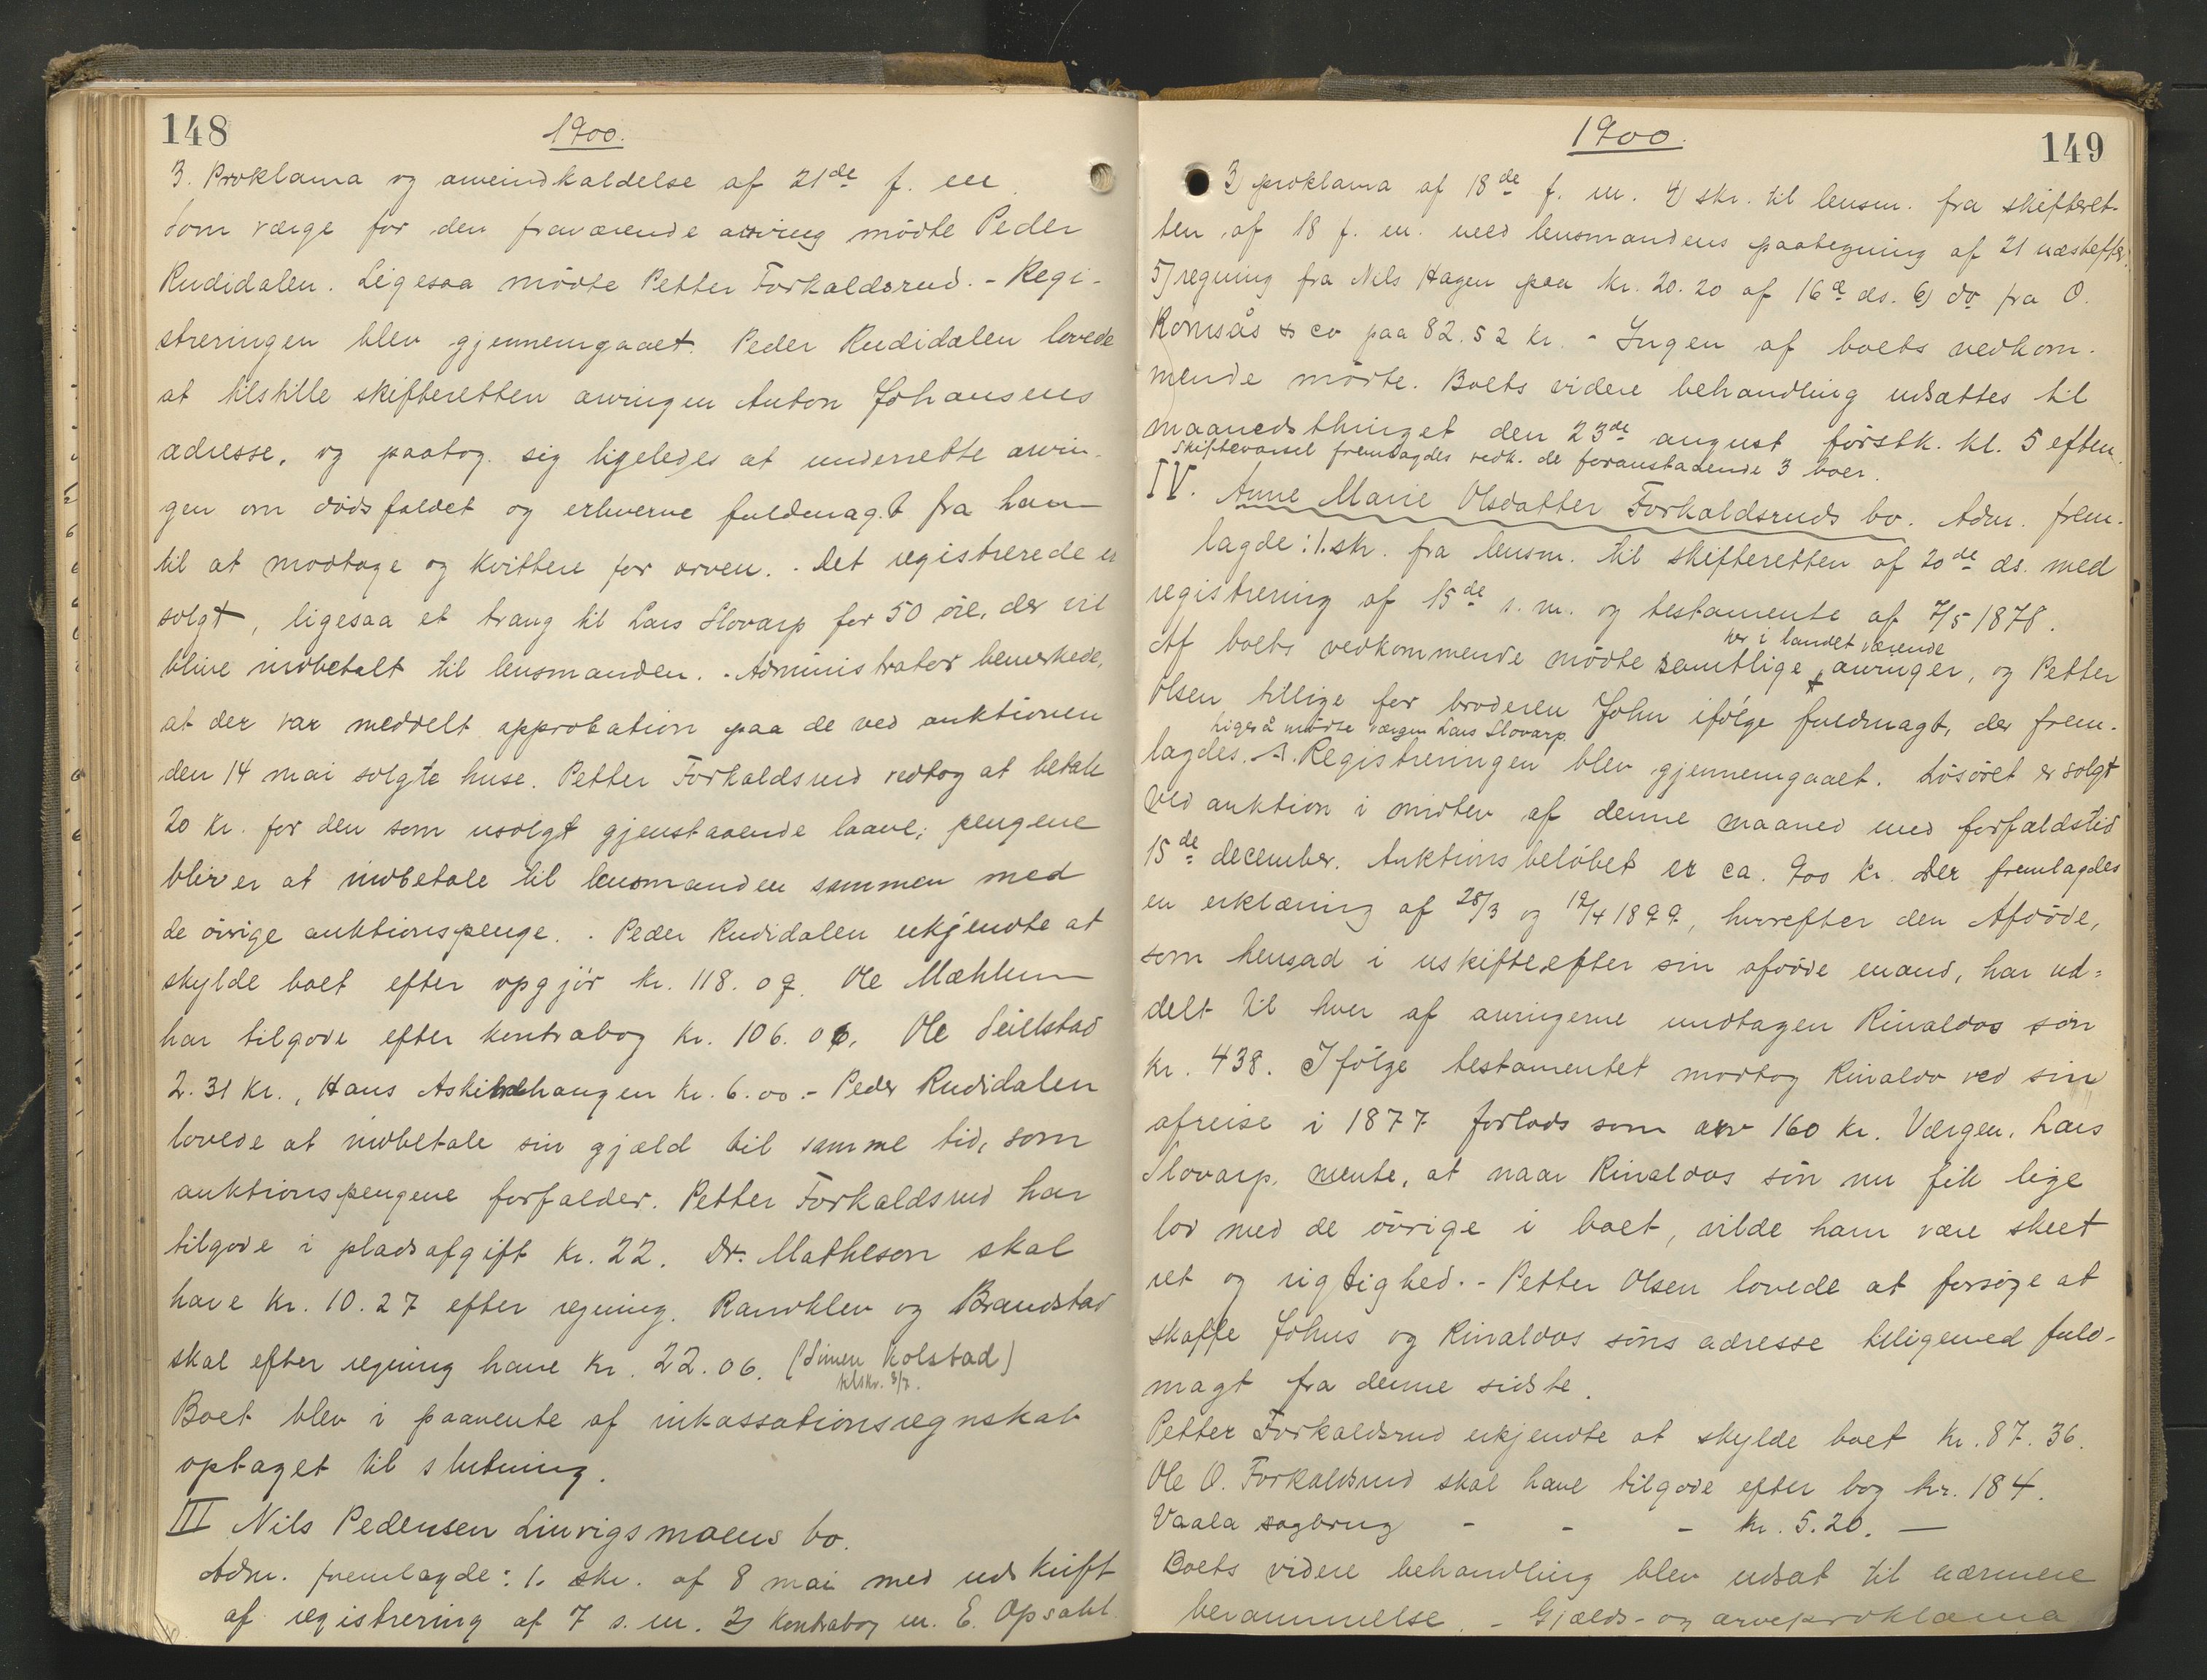 148
1900.
3. Proklama og arveindkaldelse af 21de f. m.
Som værge for den fraværende arving mödte Peder
Rudidalen. Ligesaa mödte Petter Forkaldsrud. - Regi-
streringen blev gjennemgaaet. Peder Rudidalen lovede
at tilstille skifteretten arvingen Anton Johansens
adresse, og paatog sig ligeledes at underrette arvin-
gen om dödsfaldet og erhverve fuldmagt fra ham
til at modtage og kvittere for arven. - Det registrerede er
solgt, ligesaa et traug til Lars Slovarp for 50 öre, der vil
blive indbetalt til lensmanden. - Administrator bemerkede,
at der var meddelt approbation paa de ved auktionen
den 14 mai solgte huse. Petter Forkaldsrud vedtog at betale
20 kr. for den som usolgt gjenstaaende laave; pengene
bliver at indbetale til lensmanden sammen med
de övrige auktionspenge. - Peder Rudidalen erkjendte at
skylde boet efter opgjör kr. 118.09. Ole Mæhlum
har tilgode efter kontrabog kr. 106.06. Ole Seielstad
2.31 kr., Hans Askilhaugen kr. 6.00. - Peder Rudidalen
lovede at indbetale sin gjæld til samme tid, som
auktionspengene forfalder. Petter Forkaldsrud har
tilgode i pladsafgift kr. 22. Dr. Matheson skal
have kr. 10.27 efter regning. Randklev og Brandstad
skal efter regning have kr. 22.06. (Simen Kolstad)
tilskr. 3/7.
Boet blev i paavente af inkassationsregnskab
optaget til slutning.
III Nils Pedersen Linvigsmoens bo.
Adm. fremlagde: 1. skr. af 8 mai med udskrift
af registrering af 7 s. m. 2) Kontrabog m. E. Opsahl
149
1900.
3) proklama af 18de f. m. 4) skr. til lensm. fra skifteret-
ten af 18 f. m. med lensmandens paategning af 21 næstefter.
5) regning fra Nils Hagen paa kr. 20.20 af 16de ds. 6) do fra O.
Romsås & co paa 82.52 kr. - Ingen af boets vedkom-
mende mödte. Boets videre behandling udsattes til
maanedsthinget den 23de august förstk. kl. 5 efterm.
Skiftevarsel fremlagdes vedk. de foranstaaende 3 boer.
IV. Anne Marie Olsdatter Forkaldsruds bo. Adm. frem-
lagde: 1. skr. fra lensm. til skifteretten af 20de ds. med
registrering af 15de s. m. og testamente af 7/5 1878.
her i landet værende
Af boets vedkommende mödte samtlige arvinger, og Petter
Olsen tillige for broderen John ifölge fuldmagt, der frem-
Ligeså mödte værgen Lars Slovarp.
lagdes. Registreringen blev gjennemgaaet. Lösöret er solgt
ved auktion i midten af denne maaned med forfaldstid
15de december. Auktionsbelöbet er ca. 900 kr. Der fremlagdes
en erklæring af 28/3 og 12/4 1899, hvorefter den Afdöde,
som hensad i uskifte efter sin afdöde mand, har ud-
delt til hver af arvingerne undtagen Rinaldos sön
kr. 438. Ifölge testamentet modtog Rinaldo ved sin
afreise i 1877 forlods som arv 160 kr. Værgen, Lars
Slovarp, mente, at naar Rinaldos sön nu fik lige
lod med de övrige i boet, vilde ham være skeet
ret og rigtighed. - Petter Olsen lovede at forsöge at
skaffe Johns og Rinaldos söns adresse tilligemed fuld-
magt fra denne sidste.
Petter Forkaldsrud erkjendte at skylde boet kr. 87.36.
Ole O. Forkaldsrud skal have tilgode efter bog kr. 184.
Vaala sagbrug - - - kr. 5.20. —
Boets videre behandling blev udsat til nærmere
berammelse. - Gjælds- og arveproklama